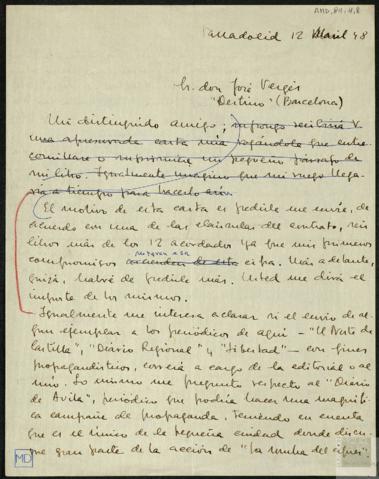 AMD, 84, 4, 8
Valladolid 12 Abril 48
Sr. don José Vergés
"Destino" (Barcelona)
Mi distinguido amigo; supongo recibiría V.
una apresurada carta mía rogándole que entre
comillase o suprimiera un pequeño párrafo de
mi libro. Igualmente imagino que mi ruego llega
ría a tiempo para hacerlo así.
El motivo de esta carta es pedirle me envíe, de
acuerdo con una de las cláusulas del contrato, seis
libros más de los 12 acordados ya que mis primeros
compromisos rebasan esa cifra. Más adelante,
quizá, habré de pedirle más. Usted me dirá el
importe de los mismos.
Igualmente me interesa aclarar si el envío de al
gún ejemplar a los periódicos de aquí - "El Norte de
Castilla", "Diario Regional" y "Libertad" - con fines
propagandísticos, correrá a cargo de la editorial o al
mío. Lo mismo me pregunto respecto al "Diario
de Avila", periódico que podría hacer una magnífi
ca campaña de propaganda. Teniendo en cuenta
que es el único de la pequeña ciudad donde discu
rre gran parte de la acción de "La sombra del ciprés".
MD